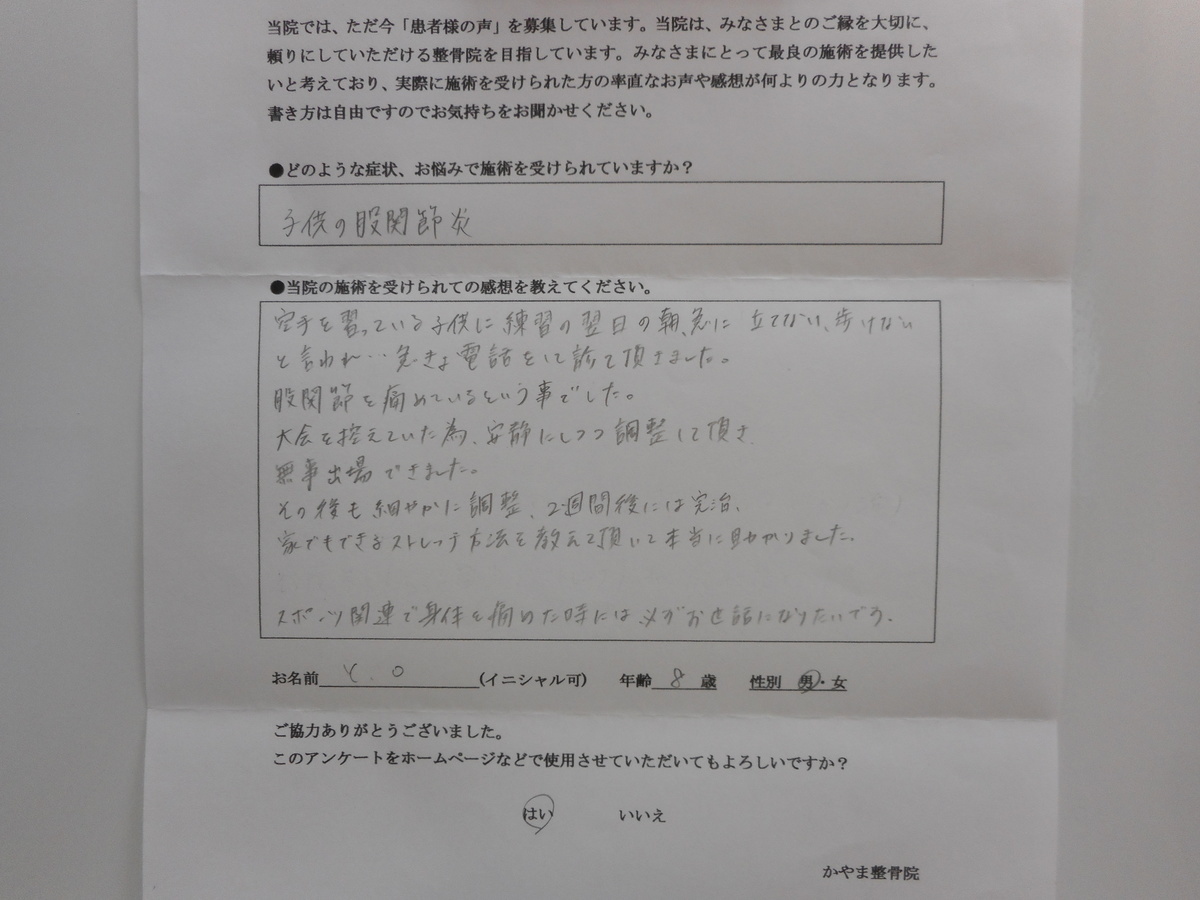 当院では、ただ今「患者様の声」を募集しています。当院は、みなさまとのご縁を大切に、
頼りにしていただける整骨院を目指しています。みなさまにとって最良の施術を提供した
いと考えており、実際に施術を受けられた方の率直なお声や感想が何よりの力となります。
書き方は自由ですのでお気持ちをお聞かせください。
●どのような症状、お悩みで施術を受けられていますか？
子供の股関節炎
●当院の施術を受けられての感想を教えてください。
空手を習っている子供に練習の翌日の朝、急に立てない、歩けない
と言われ…急きょ電話をして診て頂きました。
股関節を痛めているという事でした。
大会を控えていた為、安静にしつつ調整して頂き、
無事出場できました。
その後も細やかに調整、2週間後には完治、
家でもできるストレッチ方法を教えて頂いて本当に助かりました。
スポーツ関連で身体を痛めた時には、必ずお世話になりたいです。
お名前 Y.O (イニシャル可) 年齢 8 歳 性別 男・女
ご協力ありがとうございました。
このアンケートをホームページなどで使用させていただいてもよろしいですか？
はい いいえ
かやま整骨院